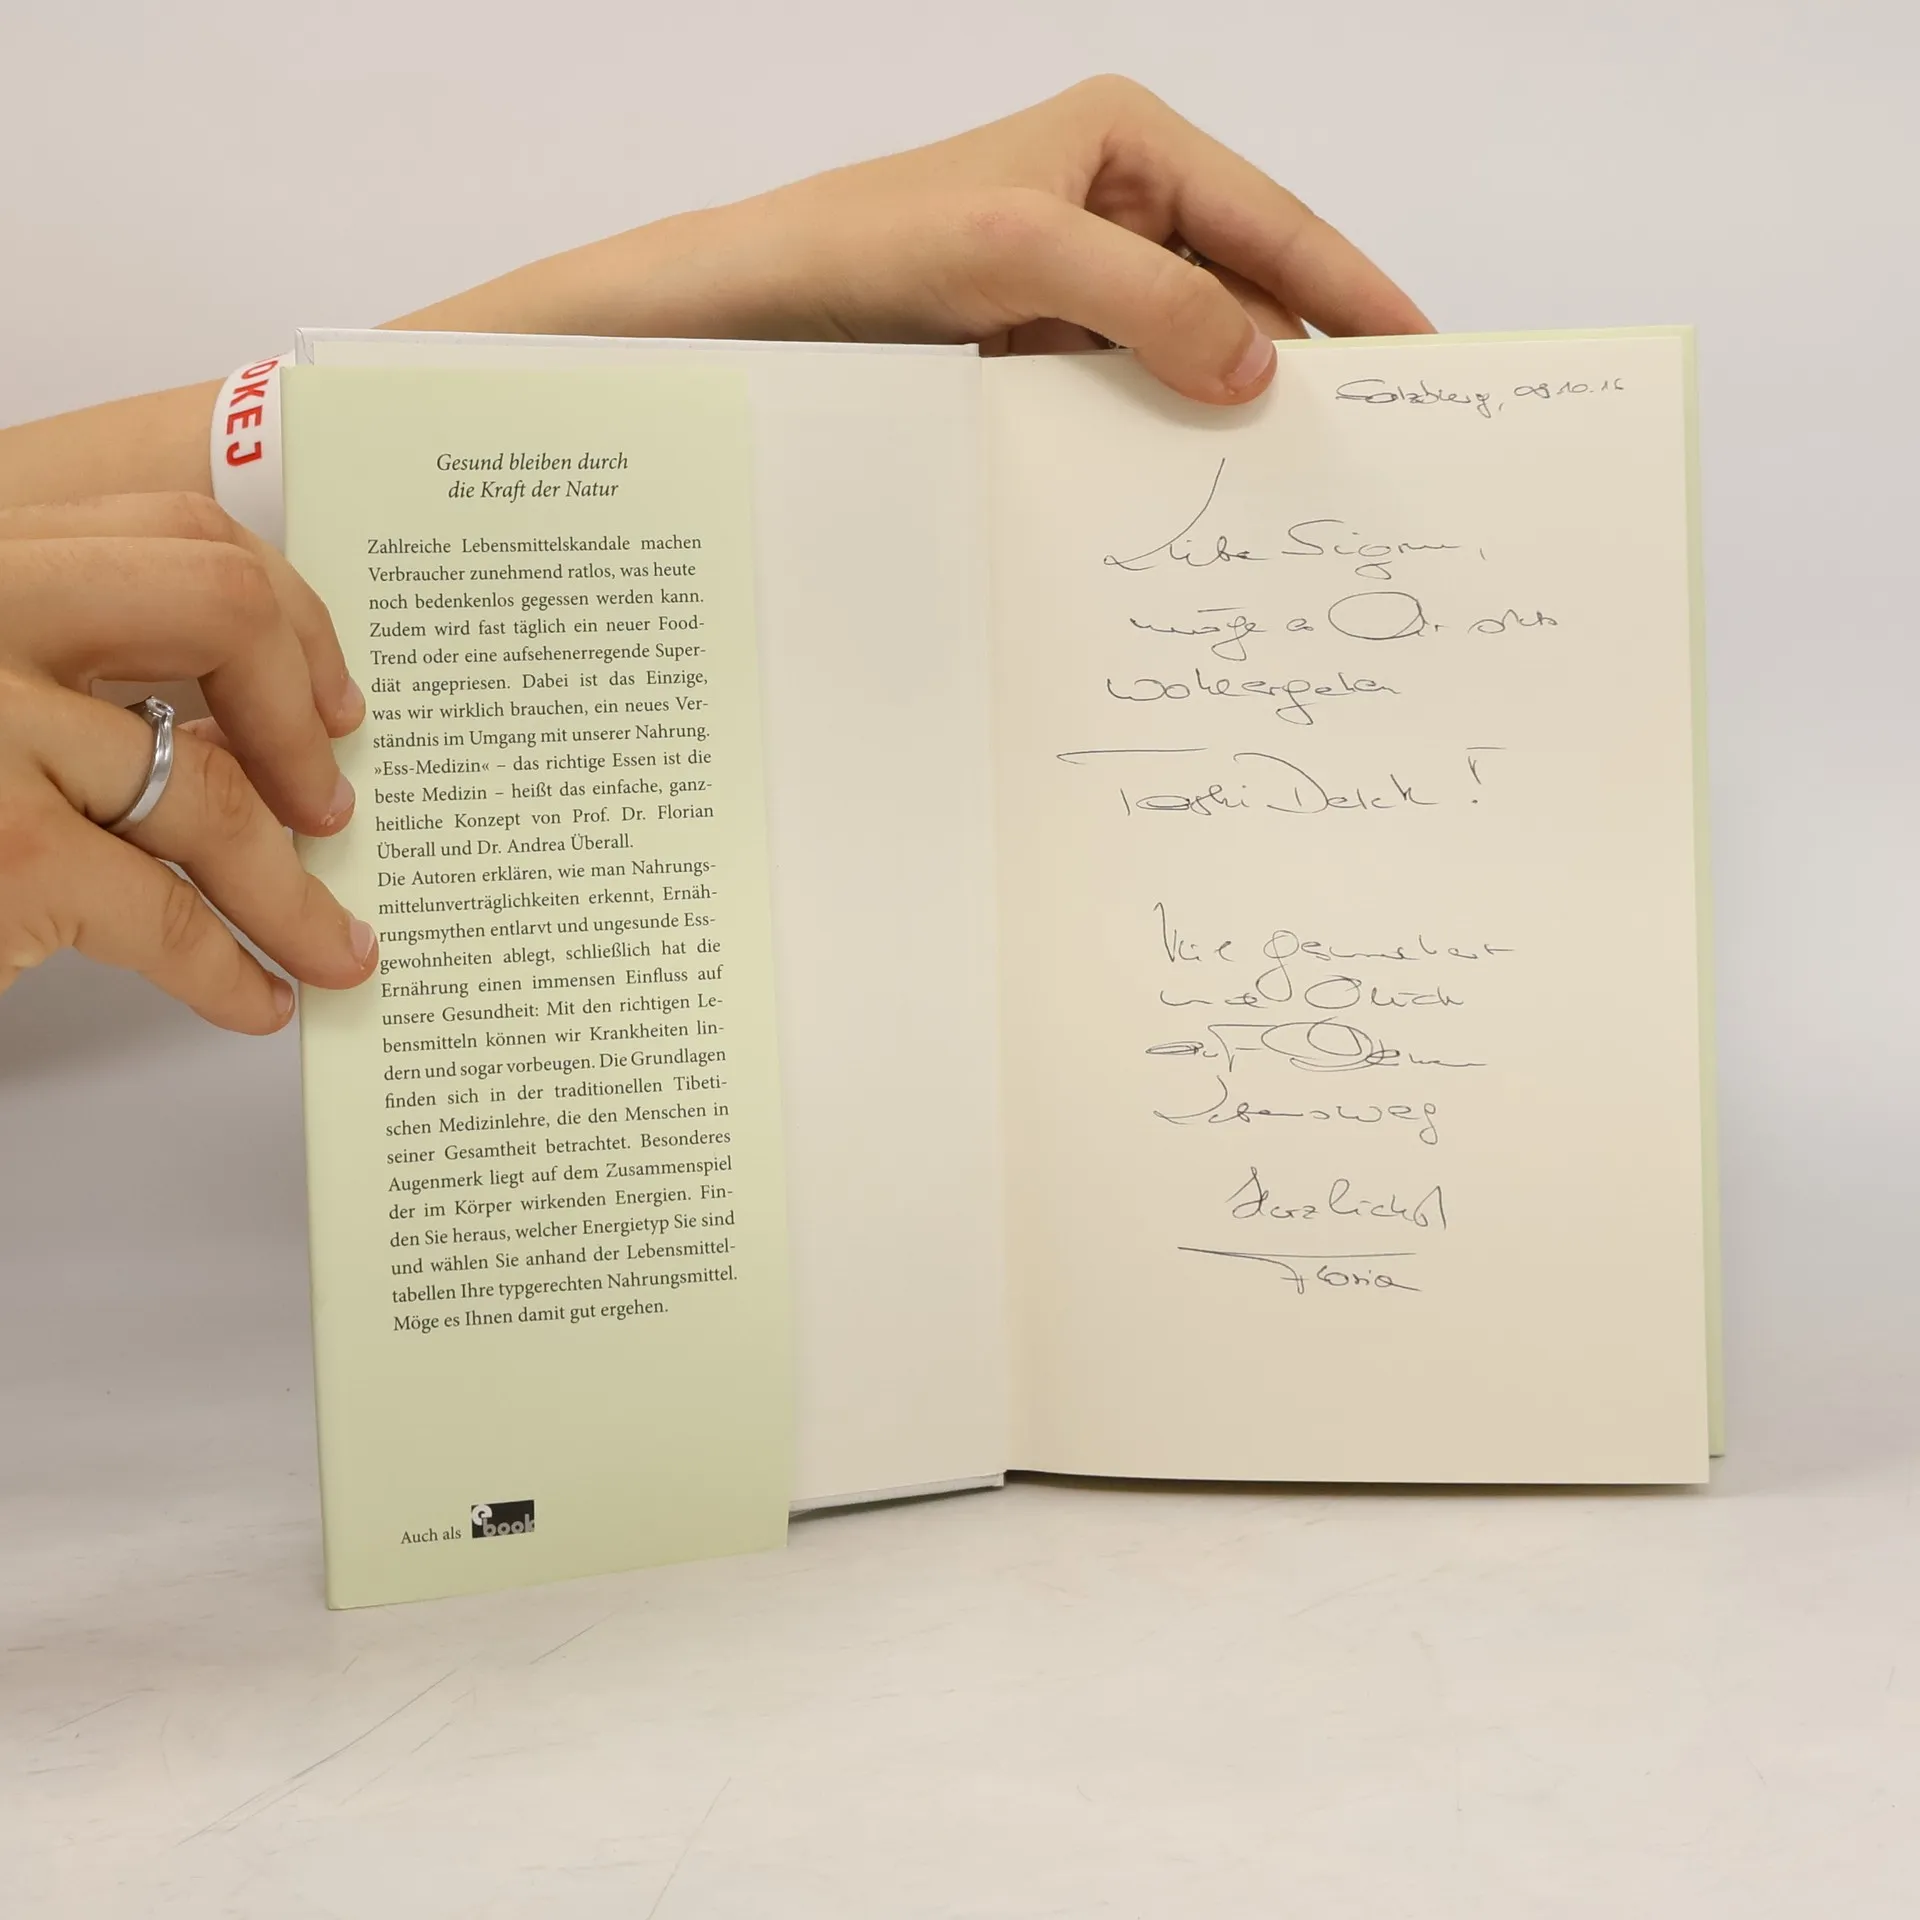 OKEJ
Gesund bleiben durch
die Kraft der Natur
Zahlreiche Lebensmittelskandale machen
Verbraucher zunehmend ratlos, was heute
noch bedenkenlos gegessen werden kann.
Zudem wird fast täglich ein neuer Food-
Trend oder eine aufsehenerregende Super-
diät angepriesen. Dabei ist das Einzige,
was wir wirklich brauchen, ein neues Ver-
ständnis im Umgang mit unserer Nahrung.
»Ess-Medizin« – das richtige Essen ist die
beste Medizin – heißt das einfache, ganz-
heitliche Konzept von Prof. Dr. Florian
Überall und Dr. Andrea Überall.
Die Autoren erklären, wie man Nahrungs-
mittelunverträglichkeiten erkennt, Ernäh-
rungsmythen entlarvt und ungesunde Ess-
gewohnheiten ablegt, schließlich hat die
Ernährung einen immensen Einfluss auf
unsere Gesundheit: Mit den richtigen Le-
bensmitteln können wir Krankheiten lin-
dern und sogar vorbeugen. Die Grundlagen
finden sich in der traditionellen Tibeti-
schen Medizinlehre, die den Menschen in
seiner Gesamtheit betrachtet. Besonderes
Augenmerk liegt auf dem Zusammenspiel
der im Körper wirkenden Energien. Fin-
den Sie heraus, welcher Energietyp Sie sind
und wählen Sie anhand der Lebensmittel-
tabellen Ihre typgerechten Nahrungsmittel.
Möge es Ihnen damit gut ergehen.
Auch als ebook
Salzburg,
Liebe
möge es Dir stets
wohlergehen
Tashi Delek!
Viel Gesundheit
und Glück
auf Deinem
Lebensweg
Herzlichst
Florian